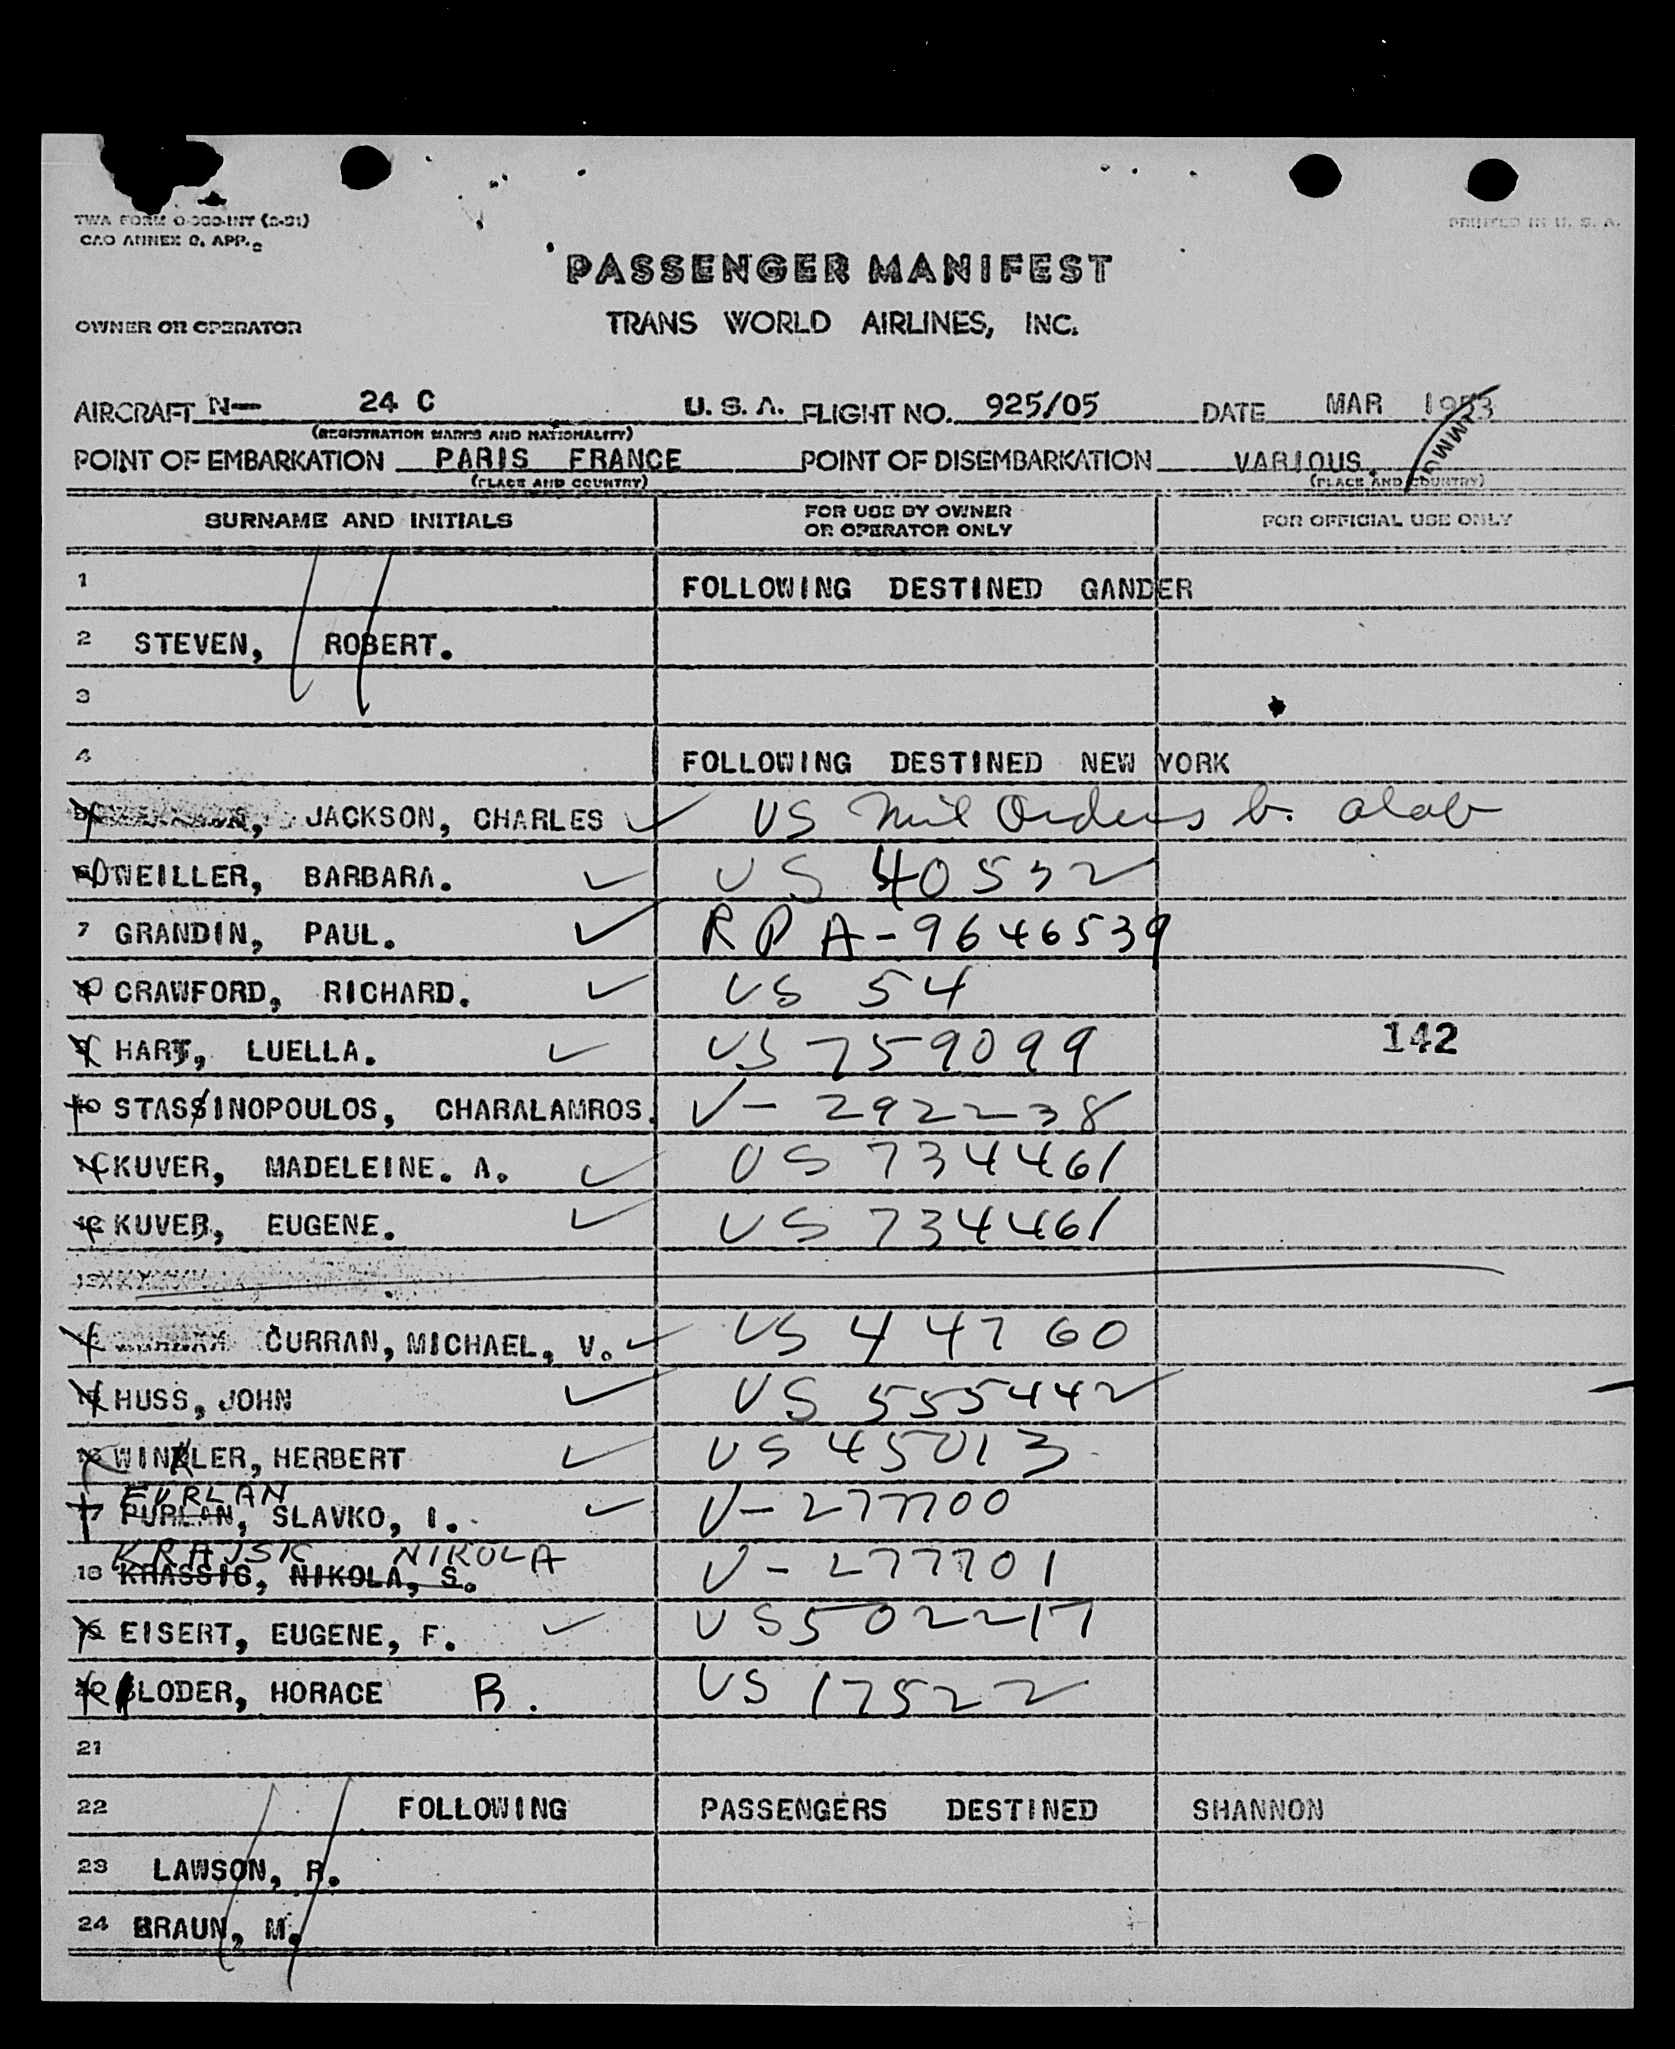 TWA FORM O-
CAO ANNEX 9, APP.
PRINTED IN U. S. A.
PASSENGER MANIFEST
OWNER OR OPERATOR
TRANS WORLD AIRLINES, INC.
AIRCRAFT N— 24 C U. S. A. FLIGHT NO. 925/05 DATE MAR 1953
(REGISTRATION MARKS AND NATIONALITY)
POINT OF EMBARKATION PARIS FRANCE POINT OF DISEMBARKATION VARIOUS.
(PLACE AND COUNTRY) (PLACE AND COUNTRY)
SURNAME AND INITIALS FOR USE BY OWNER OR OPERATOR ONLY FOR OFFICIAL USE ONLY
1 FOLLOWING DESTINED GANDER
2 STEVEN, ROBERT.
3
4 FOLLOWING DESTINED NEW YORK
JACKSON, CHARLES ✓ US Mil Orders b. alab
WEILLER, BARBARA. ✓ US 40532
7 GRANDIN, PAUL. ✓ RPA-9646539
CRAWFORD, RICHARD. ✓ US 54
HART, LUELLA. ✓ US 759099 142
10 STASSINOPOULOS, CHARALAMROS. V- 292238
KUVER, MADELEINE. A. ✓ US 734461
12 KUVER, EUGENE. ✓ US 734461
13
CURRAN, MICHAEL, V. ✓ US 444760
HUSS, JOHN ✓ US 555442
16 WINKLER, HERBERT ✓ US 45013
FURLAN
17 FURLAN, SLAVKO, I. ✓ V-277700
KRAJSK NIKOLA
18 KRASSIG, NIKOLA, S. V-277701
EISERT, EUGENE, F. ✓ US 502217
20 LODER, HORACE B. US 17522
21
22 FOLLOWING PASSENGERS DESTINED SHANNON
23 LAWSON, R.
24 BRAUN, M.